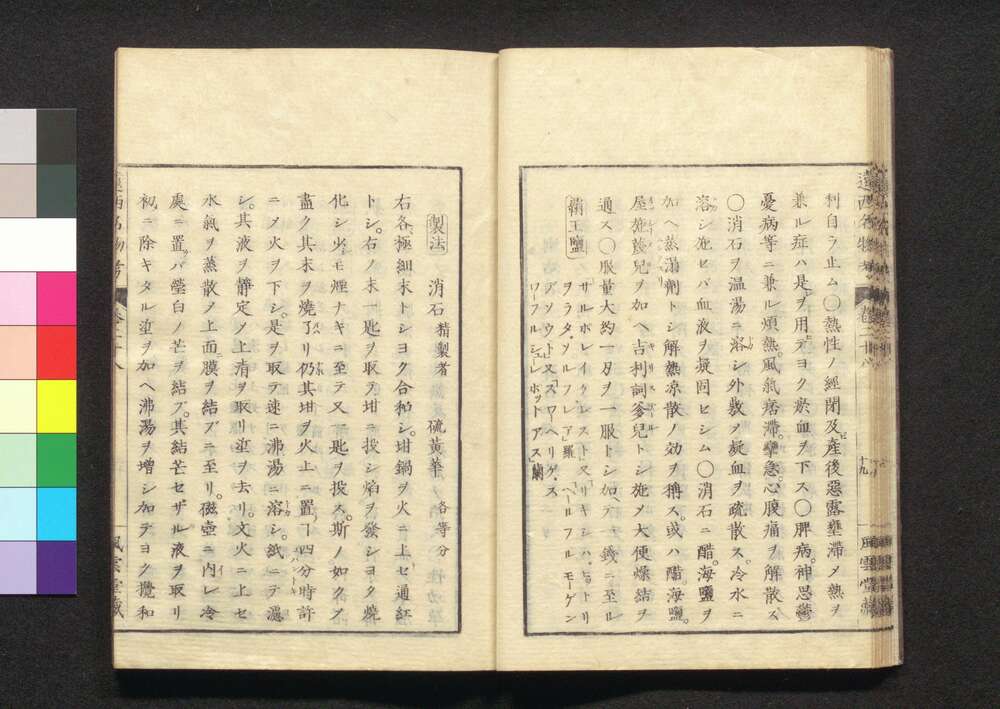 利自ラ止ム〇熱性ノ經閉及產後惡露壅滯メ熱ヲ
兼ル症ハ是ヲ用テヨク瘀血ヲ下ス〇脾病。神思鬱
憂病等ニ兼ル煩熱。風氣痞滯。攣急。心腹痛ヲ解散ス
〇消石ヲ温湯ニ溶シ外敷メ凝血ヲ疏散ス。冷水ニ
溶シ施セバ血液ヲ凝固セシム〇消石ニ醋。海鹽ヲ
加ヘ蒸溻劑トシ解熱凉散ノ効ヲ稱ス。或ハ醋海鹽。
ヲ加ヘ吉利詞爹兒トシ施メ大便燥結ヲ
通ス〇服量大約一匁ヲ一服トシ加テ一錢ニ至ル
霸王鹽
十九
風雲堂藏
製法 消石精製者 硫黄華各等分
右各極細末トシヨク合和シ。坩鍋ヲ火ニ上セ通紅
トシ。右ノ末一匙ヲ取テ坩ニ投シ焰ヲ發シヨク燒
化シ火モ煙ナキニ至テ又一匙ヲ投ス。斯ノ如クメ
盡ク其末ヲ燒了リ仍其坩ヲ火上ニ置ヿ四分時許
ニメ火ヲ下シ。是ヲ取テ速ニ沸湯ニ溶シ。紙ニテ濾
シ。其液ヲ靜定メ上清ヲ取リ渣ヲ去リ。文火ニ上セ
水氣ヲ蒸散メ上面膜ヲ結ブニ至リ。磁壺ニ内レ冷
處ニ置バ瑩白ノ芒ヲ結ブ。其結芒セザル液ヲ取リ
初ニ除キタル渣ヲ加ヘ沸湯ヲ增シ加テヨク攪和
遠西名物考
風雲堂藏